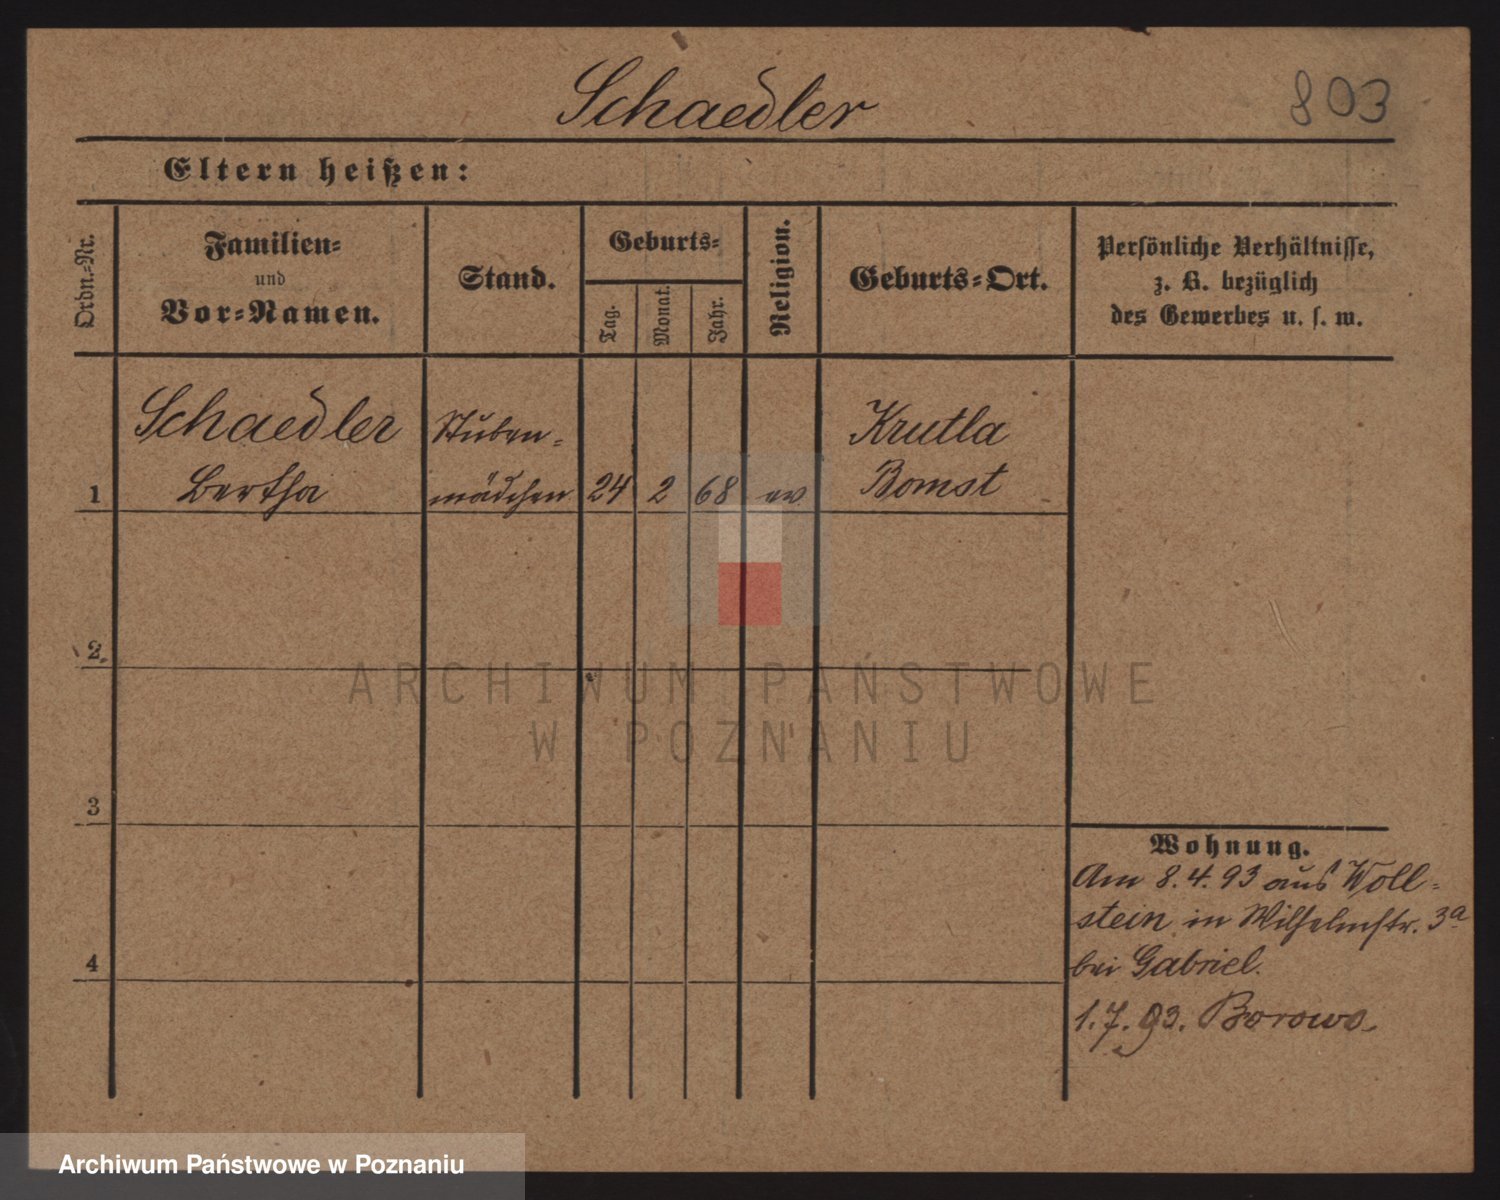 Schaedler
803
Eltern heißen:
Ordn.-Nr.
Familien-
und
Vor-Namen.
Stand.
Geburts-
Tag.
Monat.
Jahr.
Religion.
Geburts-Ort.
Persönliche Verhältnisse,
z. B. bezüglich
des Gewerbes u. s. w.
Schaedler
Bertha
Stuben-
mädchen
1
24
2
68
ev
Krutla
Bomst
2
3
4
ARCHIWUM PAŃSTWOWE
W POZNANIU
Wohnung.
Am 8.4.93 aus Woll-
stein in Wilhelmstr. 3a
bei Gabriel.
1.7.93. Borowo
Archiwum Państwowe w Poznaniu